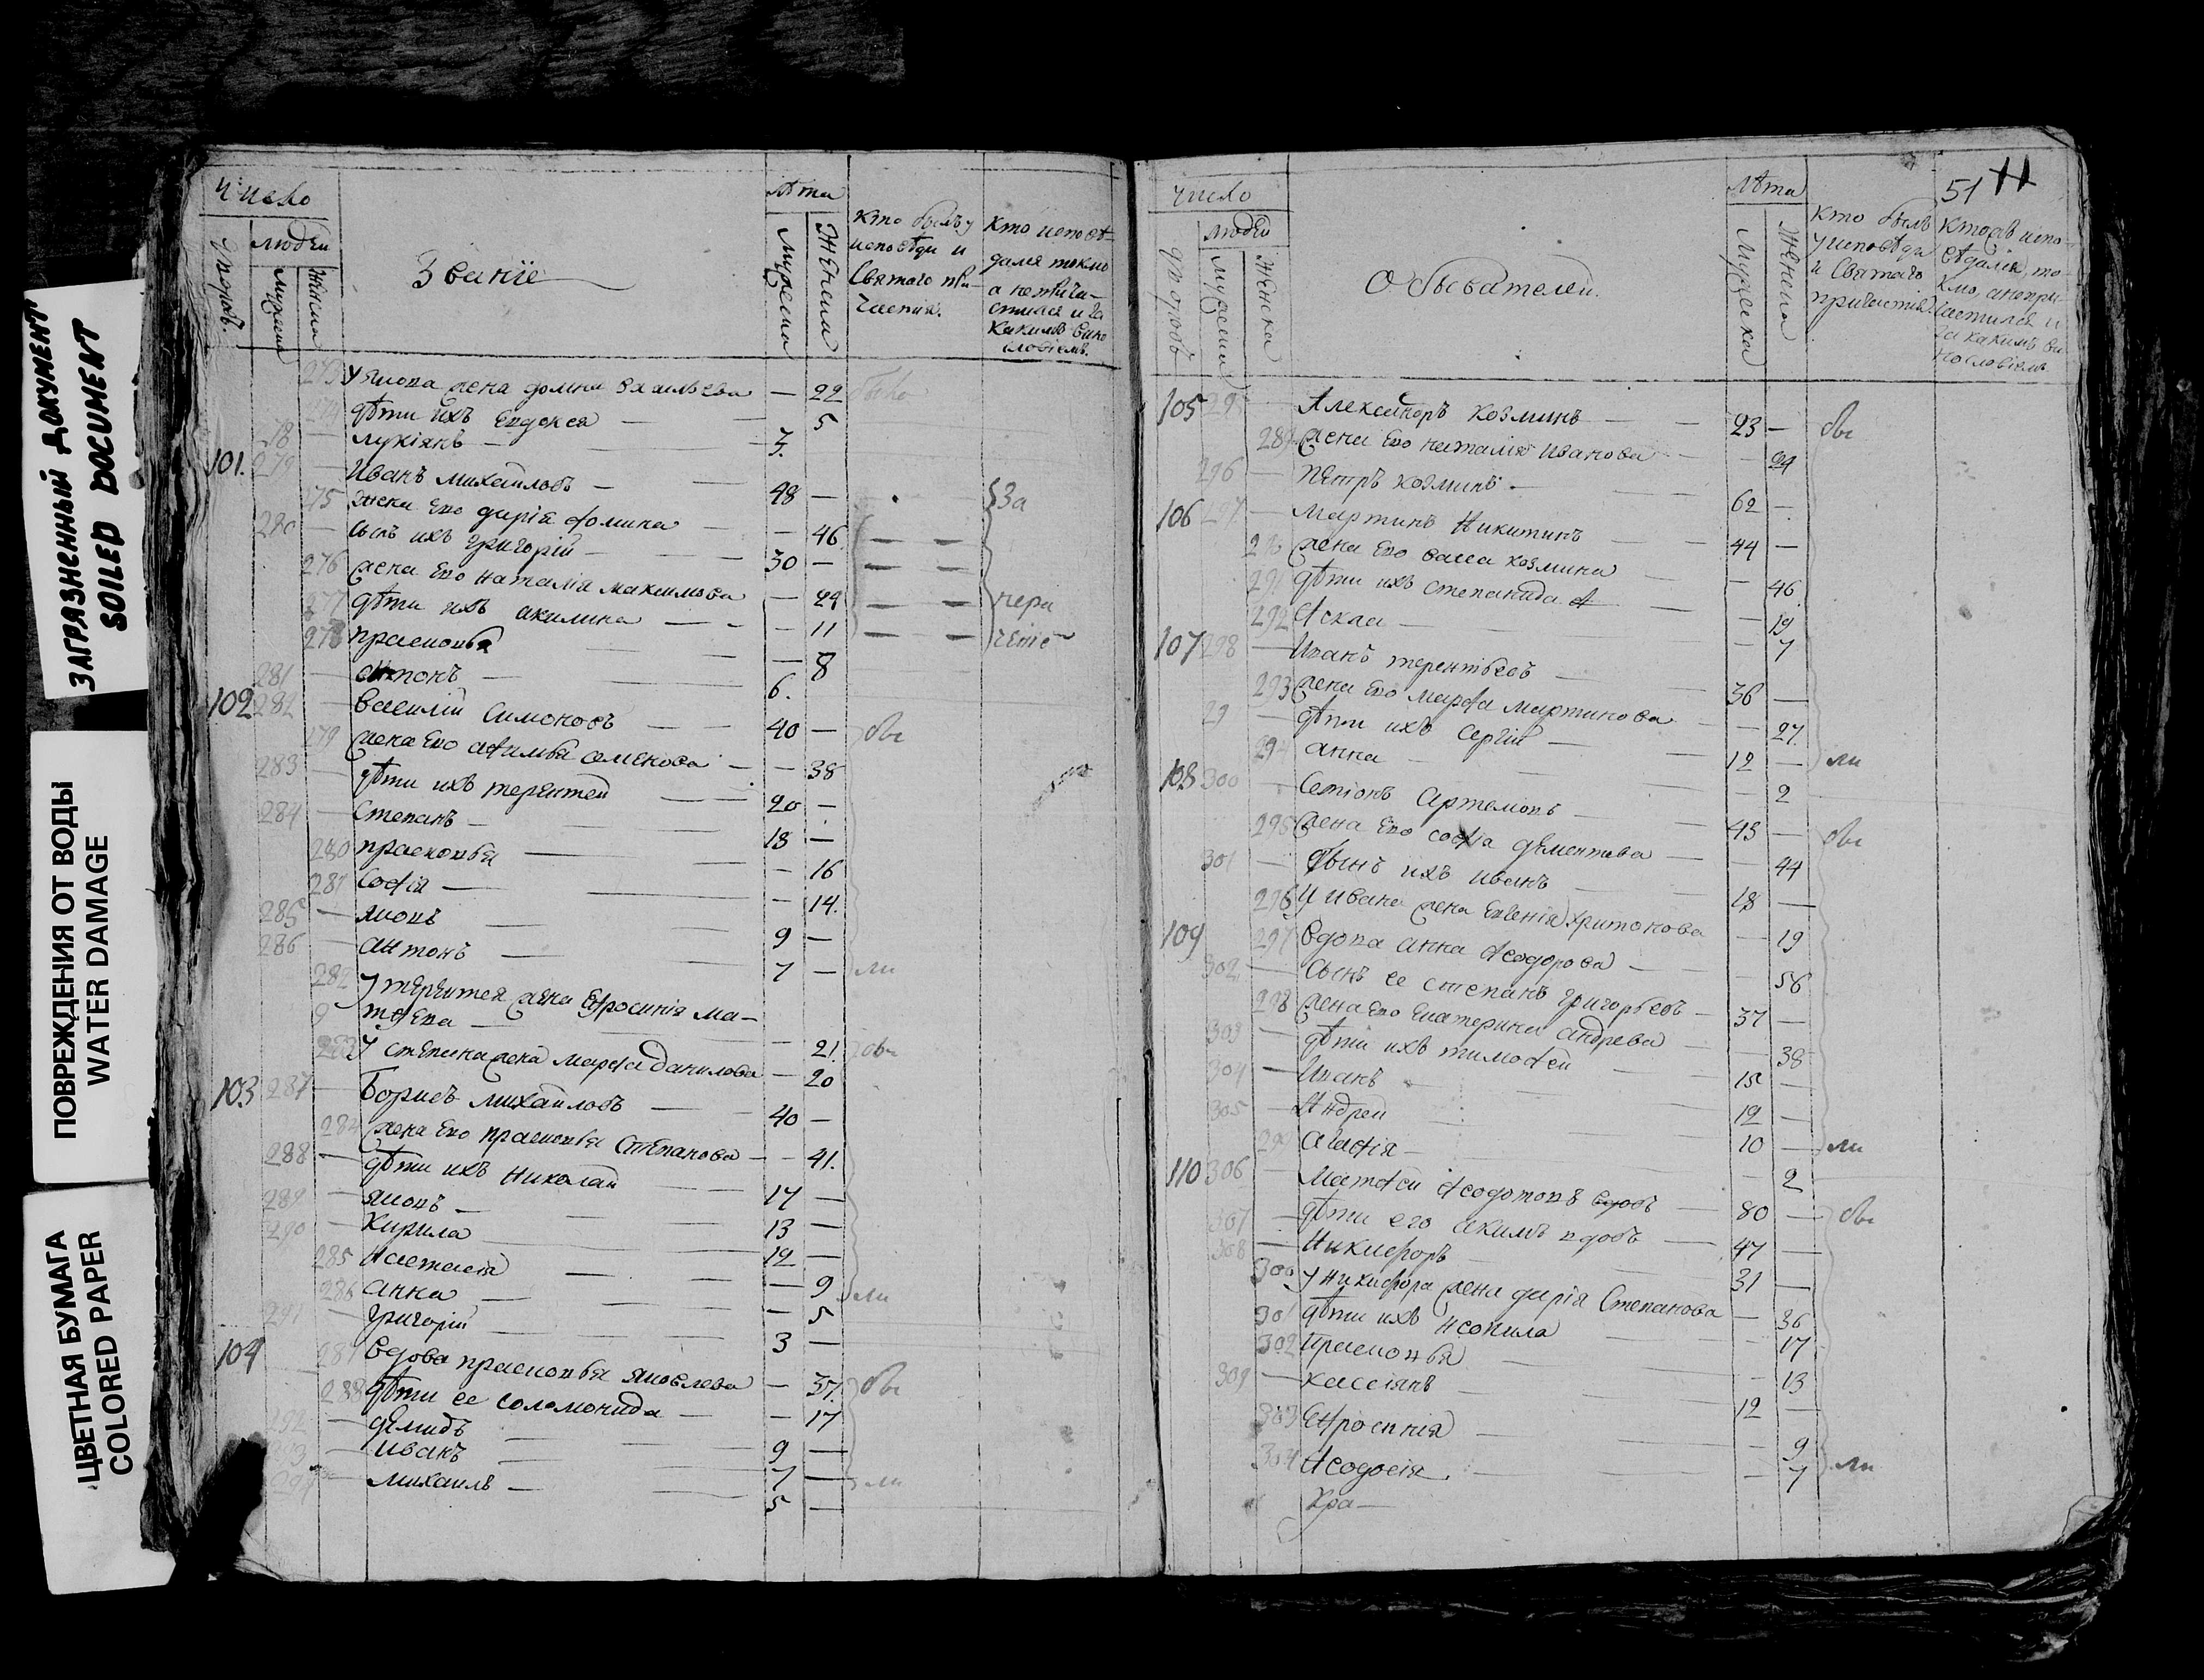 ЗАГРЯЗНЕННЫЙ ДОКУМЕНТ
SOILED DOCUMENT
ПОВРЕЖДЕНИЯ ОТ ВОДЫ
WATER DAMAGE
ЦВЕТНАЯ БУМАГА
COLORED PAPER
Число
людей
дворовъ
мужеска
женска
Званїе
лѣта
мужеска
женска
Кто былъ у
исповѣди и
Святаго при-
частия.
Кто исповѣ-
дался токмо
а непричас-
тился и за
какимъ вино
словіемъ.
273 У Якова жена домна васильева — 22 было
274 дѣти ихъ Евдокея — 5
278 — лукіянъ — 3.
101. 279 — Иванъ михайловъ — 48 — За
275 жена Его дарія Фомина — 46
280 — сынъ ихъ григорій — 30 —
276 жена Его наталія максимова — 29
277 дѣти ихъ акилина — 11
278 прасковья — 8
281 — антонъ — 6.
102 282 — василій Симоновъ — 40 — бы
279 жена Его афимья семенова — 38
283 — дѣти ихъ терентей — 20 —
284 — степанъ — 18 —
280 прасковья — 16
281 Софія — 14.
285 — яковъ — 9 —
286 — антонъ — 7 — ли
282 У терентея жена Ефросинія ма-
тфѣева — 21. бы
283 У степана жена марфа данилова — 20
103 287 — Борисъ михайловъ — 40 —
284 жена Его прасковья Степанова — 41.
288 — дѣти ихъ николай — 17 —
289 — яковъ — 13 —
290 — Кирила — 12 —
285 настасія — 9
286 анна — 5 ли
291 — григорій — 3 —
104 287 вдова прасковья яковлева — 37. бы
288 дѣти ее соломонида — 17
292 — демидъ — 9 —
293 — иванъ — 7 —
294 — михаилъ — 5 — ли
51 11
число
людей
дворовъ
мужеска
женска
Обывателей.
лѣта
мужеска
женска
Кто былъ
у исповѣди
и Святаго
причастія
Кто испо-
вѣдался, то-
кмо, анепри-
частился и
за какимъ ви-
нословіемъ
105 295 — Александръ козминъ — 23 — бы
289 жена Его наталія иванова — 24
296 — пётръ козминъ — 62 —
106 297 — мартинъ никитинъ — 44 —
290 жена Его васса козмина — 46
291 дѣти ихъ степанида — 19
292 Фекла — 7
107 298 — Иванъ терентьевъ — 36 —
293 жена Его марфа мартинова — 27.
299 — дѣти ихъ Сергій — 12 — ли
294 анна — 2
108 300 — Семіонъ Артемовъ — 45 — бы
295 жена Его софія дементева — 44
301 — сынъ ихъ иванъ — 18 —
296 У ивана жена Евгенія харитонова — 19
109 297 вдова анна Феодорова — 56
302 — сынъ ее степанъ григорьевъ — 37 —
298 жена Его Екатерина андрева — 38
303 — дѣти ихъ тимофей — 15 —
304 — Иванъ — 12 —
305 — Андрей — 10 — ли
299 агафія — 2
110 306 матфей Феодотовъ вдовъ — 80 — бы
307 — дѣти его акимъ вдовъ — 47 —
308 — Никифоръ — 31 —
300 У Никифора жена дарія Степанова — 36
301 дѣти ихъ неонила — 17
302 Прасковья — 13
309 — кассіянъ — 12 —
303 Ефросинія — 9
304 Феодосія — 7 ли
Кра—